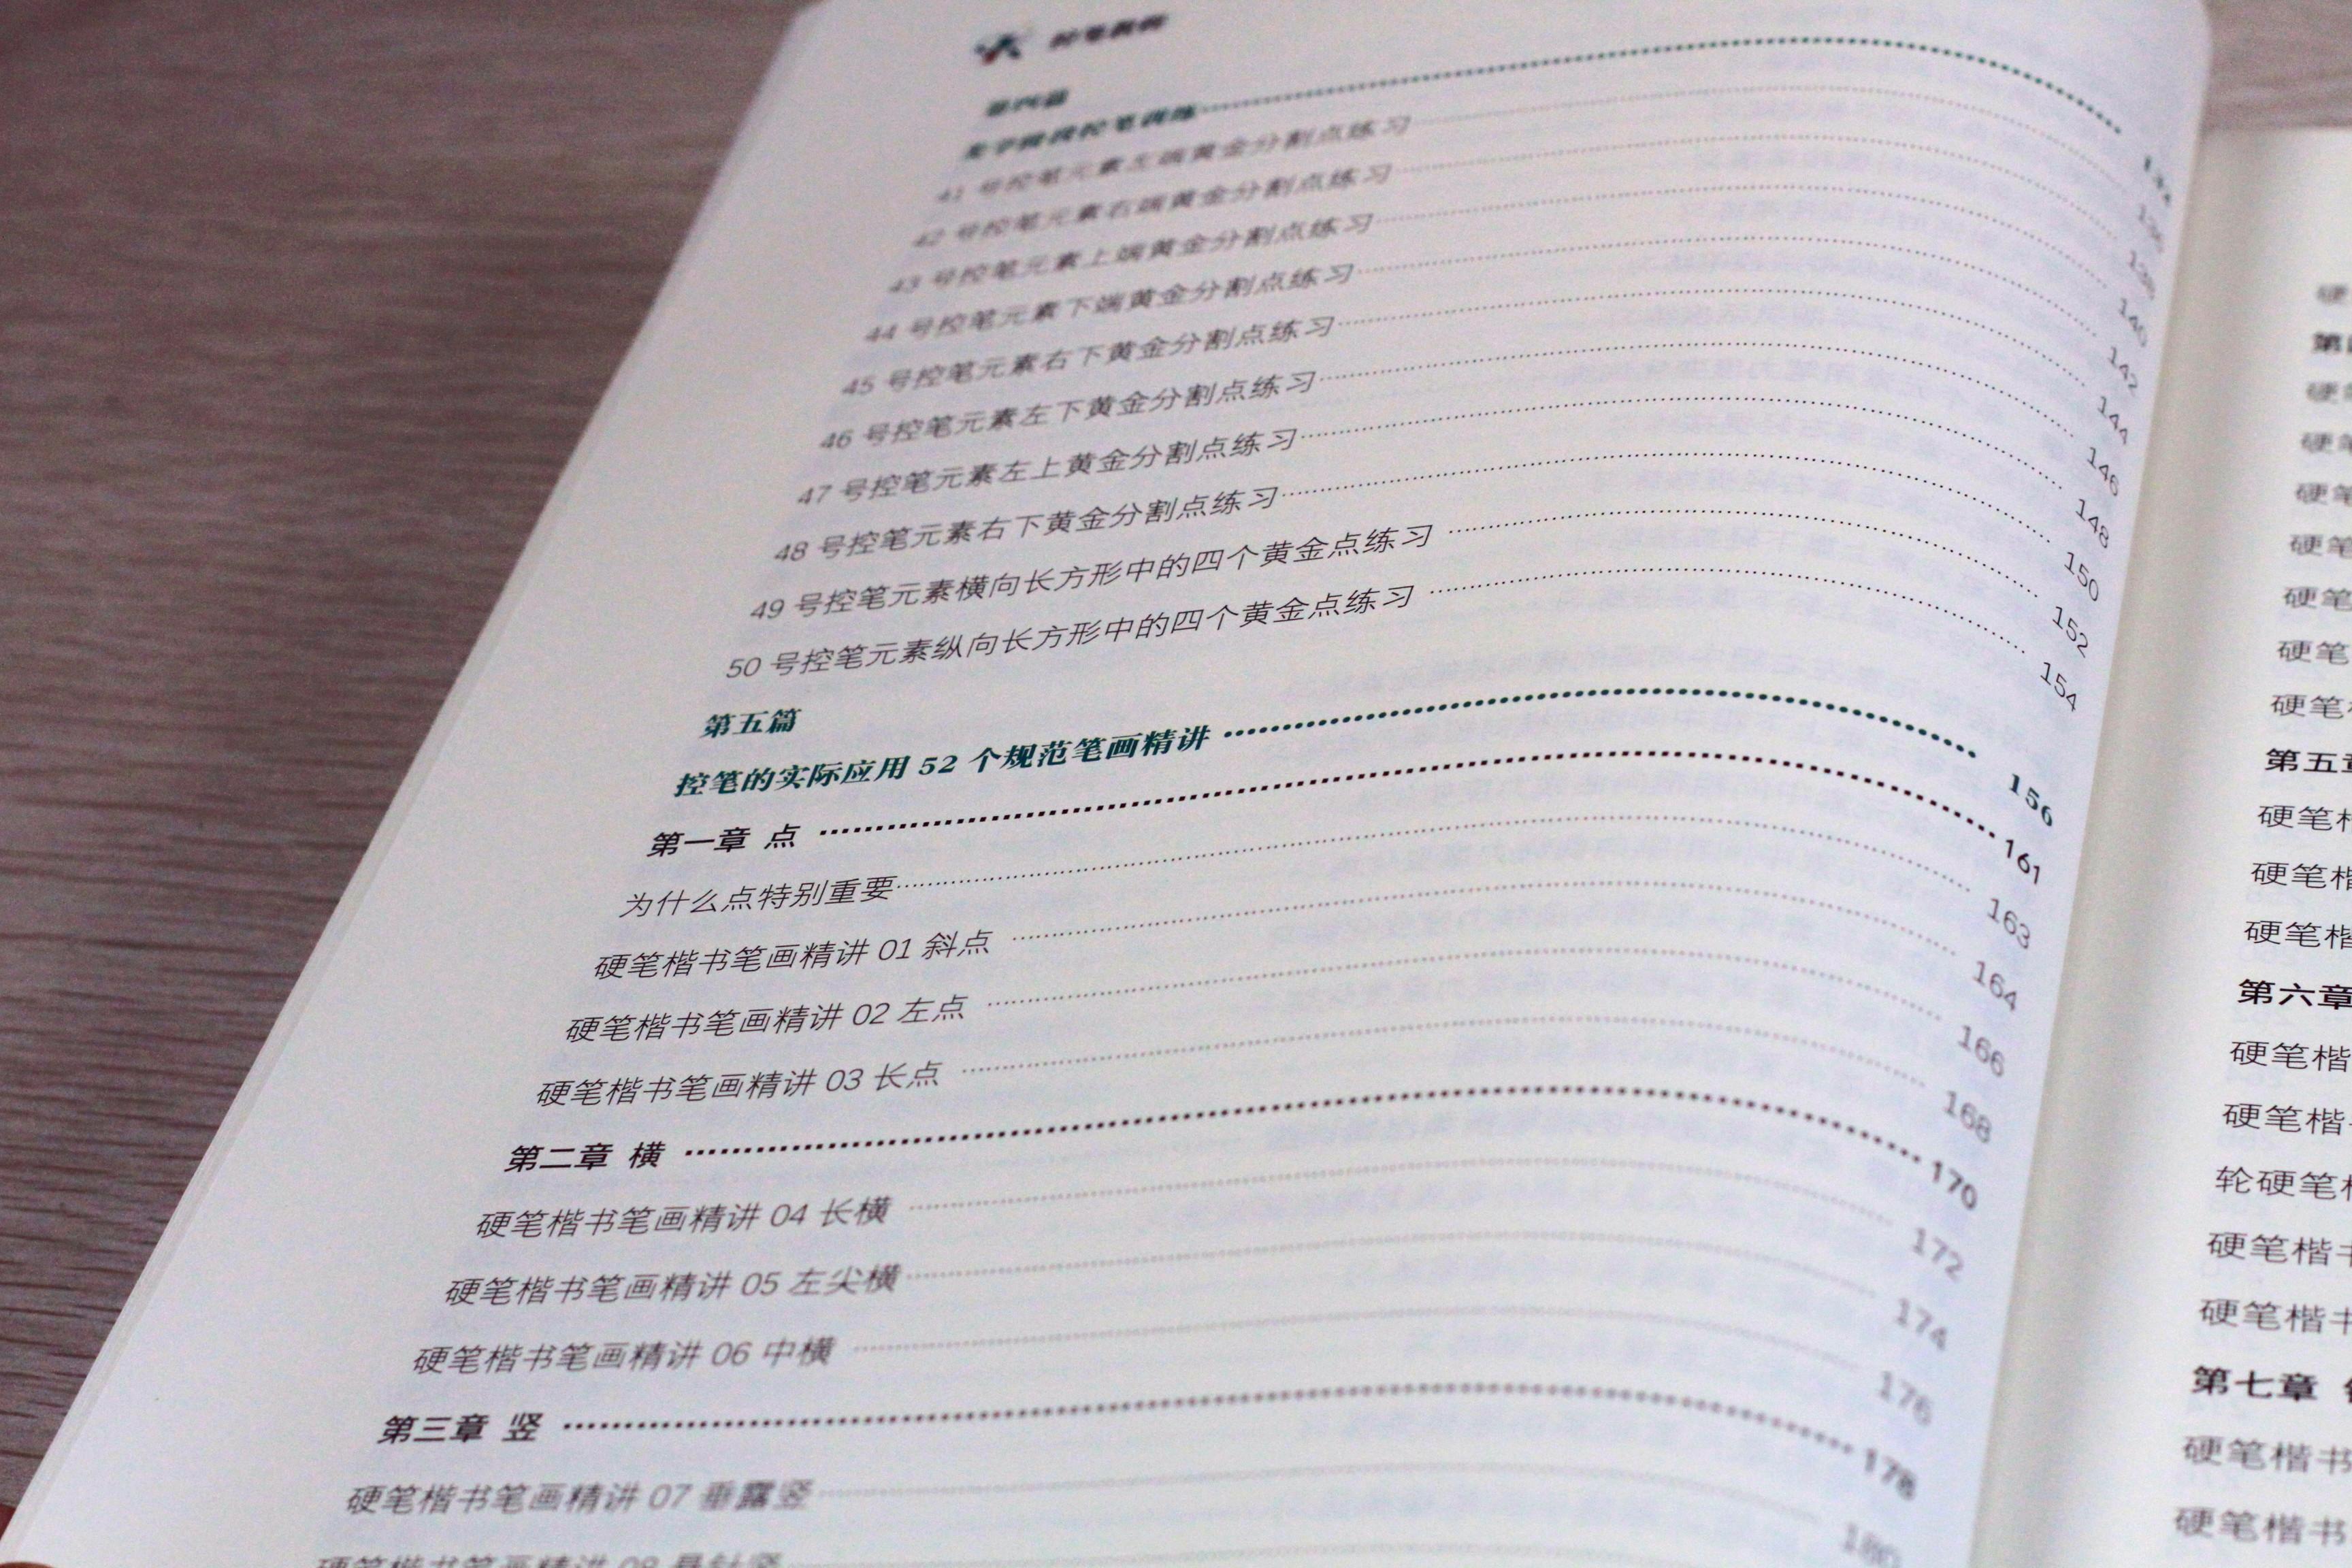 第四篇
41 号控笔元素左端黄金分割点练习 136
42 号控笔元素右端黄金分割点练习 138
43 号控笔元素上端黄金分割点练习 140
44 号控笔元素下端黄金分割点练习 142
45 号控笔元素右下黄金分割点练习 144
46 号控笔元素左下黄金分割点练习 146
47 号控笔元素左上黄金分割点练习 148
48 号控笔元素右下黄金分割点练习 150
49 号控笔元素横向长方形中的四个黄金点练习 152
50 号控笔元素纵向长方形中的四个黄金点练习 154
第五篇
控笔的实际应用 52 个规范笔画精讲 156
第一章 点 161
为什么点特别重要 163
硬笔楷书笔画精讲 01 斜点 164
硬笔楷书笔画精讲 02 左点 166
硬笔楷书笔画精讲 03 长点 168
第二章 横 170
硬笔楷书笔画精讲 04 长横 172
硬笔楷书笔画精讲 05 左尖横 174
硬笔楷书笔画精讲 06 中横 176
第三章 竖 178
硬笔楷书笔画精讲 07 垂露竖 180
硬笔楷书笔画精讲 08 悬针竖
硬
第
硬
硬
硬笔
硬笔
硬笔
硬笔
硬笔
第五章
硬笔楷
硬笔楷
硬笔楷
第六章
硬笔楷
硬笔楷
轮硬笔楷
硬笔楷书
硬笔楷书
第七章
硬笔楷书
硬笔楷书